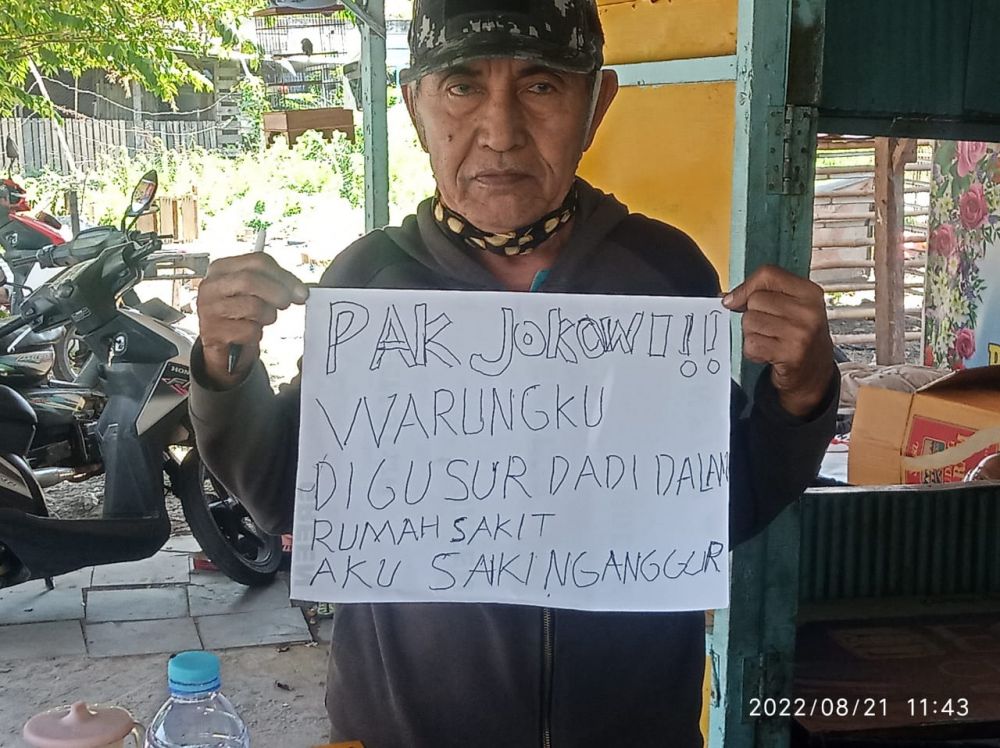 PAK JOKOWI!!
WARUNGKU
DIGUSUR DADI DALAN
RUMAH SAKIT
AKU SAIKI NGANGGUR
2022/08/21 11:43